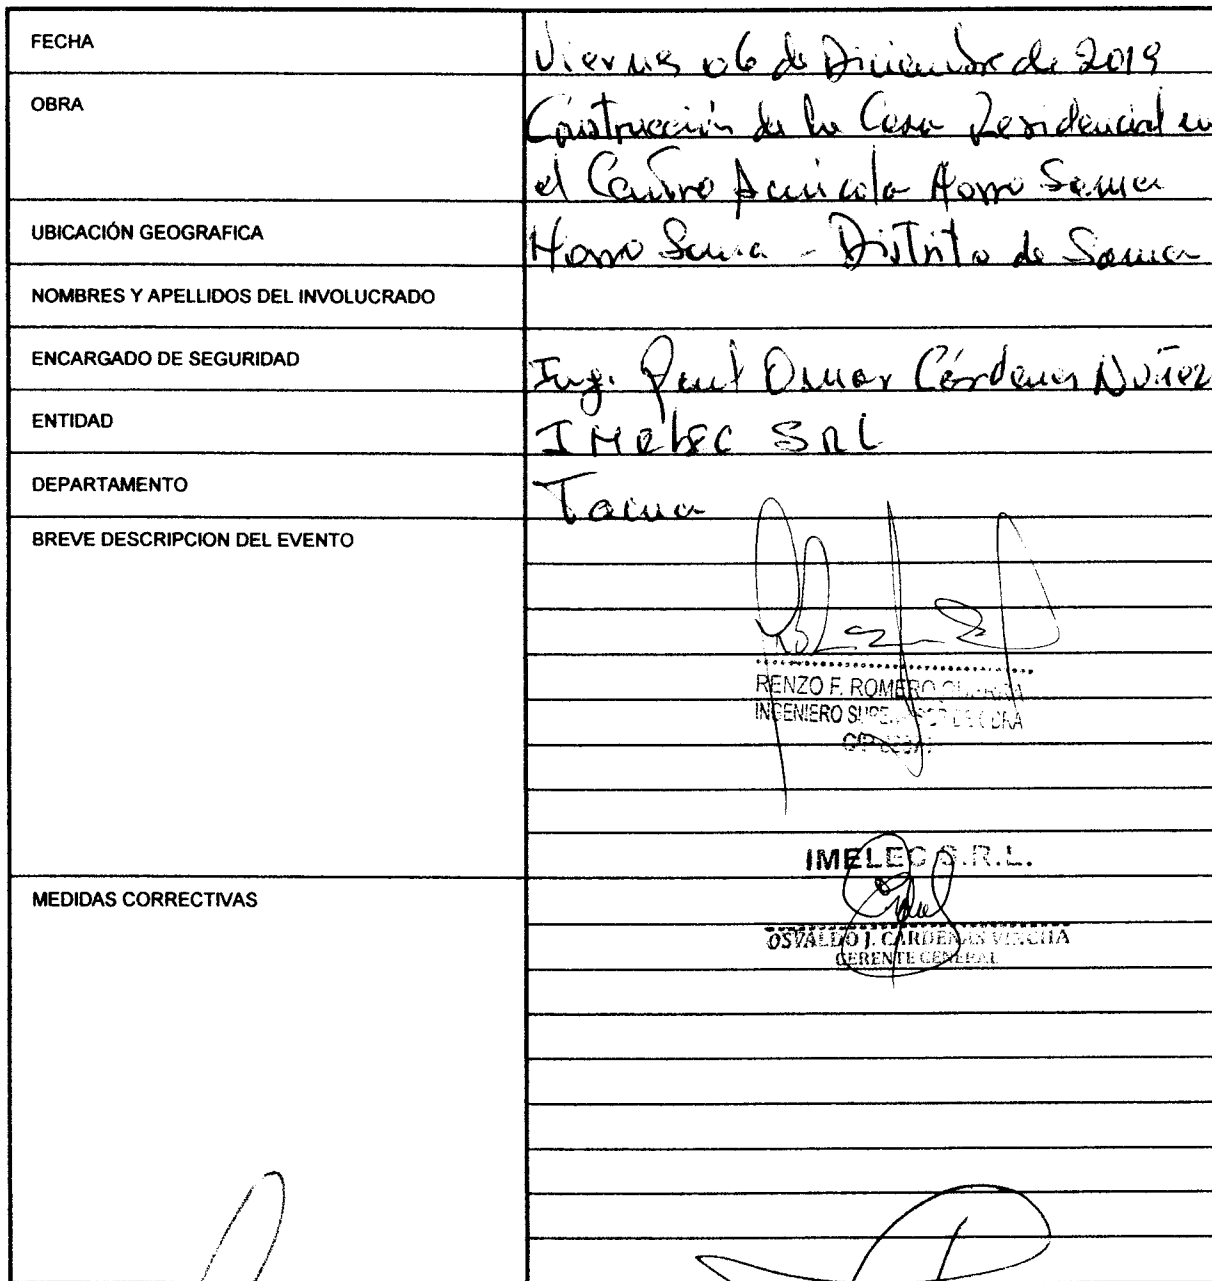 FECHA
Viernes 06 de Diciembre de 2019
OBRA
Construcción de la Casa Residencial en
el Centro Agricola Morro Sama
UBICACIÓN GEOGRAFICA
Morro Sama - Distrito de Sama
NOMBRES Y APELLIDOS DEL INVOLUCRADO
ENCARGADO DE SEGURIDAD
Ing. Paul Omar Cárdenas Nuñez
ENTIDAD
IMELEC SRL
DEPARTAMENTO
Tacna
BREVE DESCRIPCION DEL EVENTO
RENZO F. ROMERO
INGENIERO SUPERVISOR DE OBRA
IMELEC S.R.L.
MEDIDAS CORRECTIVAS
OSVALDO J. CARDENAS VINCHA
GERENTE GENERAL